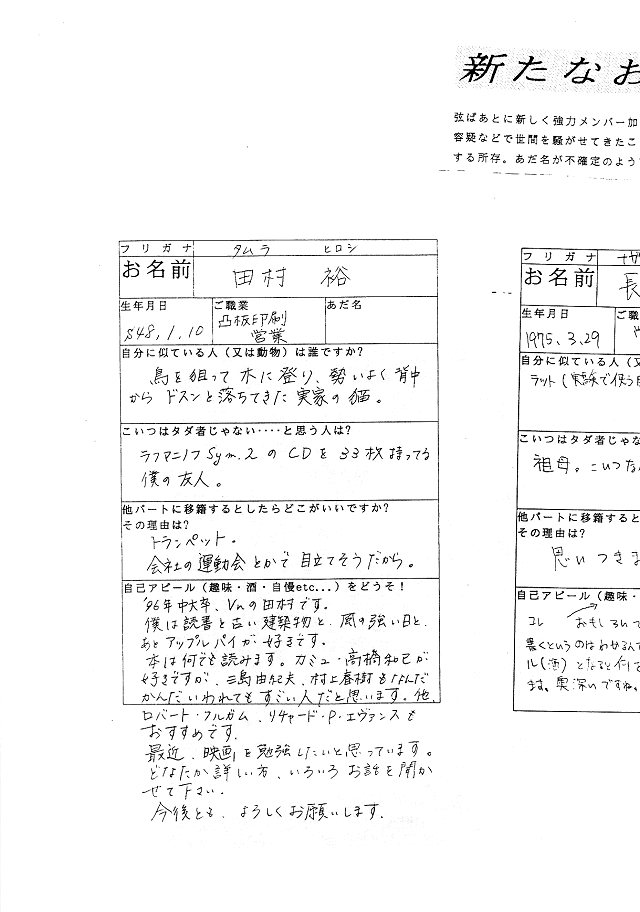 新たなお
弦ぱあとに新しく強力メンバー加
容疑などで世間を騒がせてきたこ
する所存。あだ名が不確定のよう
フリガナ タムラ ヒロシ
お名前 田村 裕
生年月日 ご職業 あだ名
S48,1,10 凸板印刷
営業
自分に似ている人（又は動物）は誰ですか？
鳥を狙って木に登り、勢いよく背中
から ドスンと落ちてきた実家の猫。
こいつはタダ者じゃない・・・・と思う人は？
ラフマニノフ Sym.2 の CDを 33枚 持ってる
僕の友人。
他パートに移籍するとしたらどこがいいですか？
その理由は？
トランペット。
会社の運動会とかで目立てそうだから。
自己アピール（趣味・酒・自慢etc...）をどうそ！
'96年中大卒、Vnの田村です。
僕は読書と古い建築物と、風の強い日と、
あとアップルパイが好きです。
本は何でも読みます。カミュ・高橋和巳が
好きですが、三島由紀夫、村上春樹もなんだ
かんだいわれてもすごい人だと思います。他、
ロバート・フルガム、リチャード・P・エヴァンスも
おすすめです。
最近、映画を勉強したいと思っています。
どなたか詳しい方、いろいろお話を聞か
せて下さい。
今後とも、よろしくお願いします。
フリガナ ナガ
お名前 長
生年月日 ご職
1975、3.29
自分に似ている人（又
ラット（実験で使う
こいつはタダ者じゃな
祖母。こいつな
他パートに移籍すると
その理由は？
思いつきま
自己アピール（趣味・
コレ おもしろい
書くというのはわかるんで
ル（酒）となると何で
ます。奥深いですね。